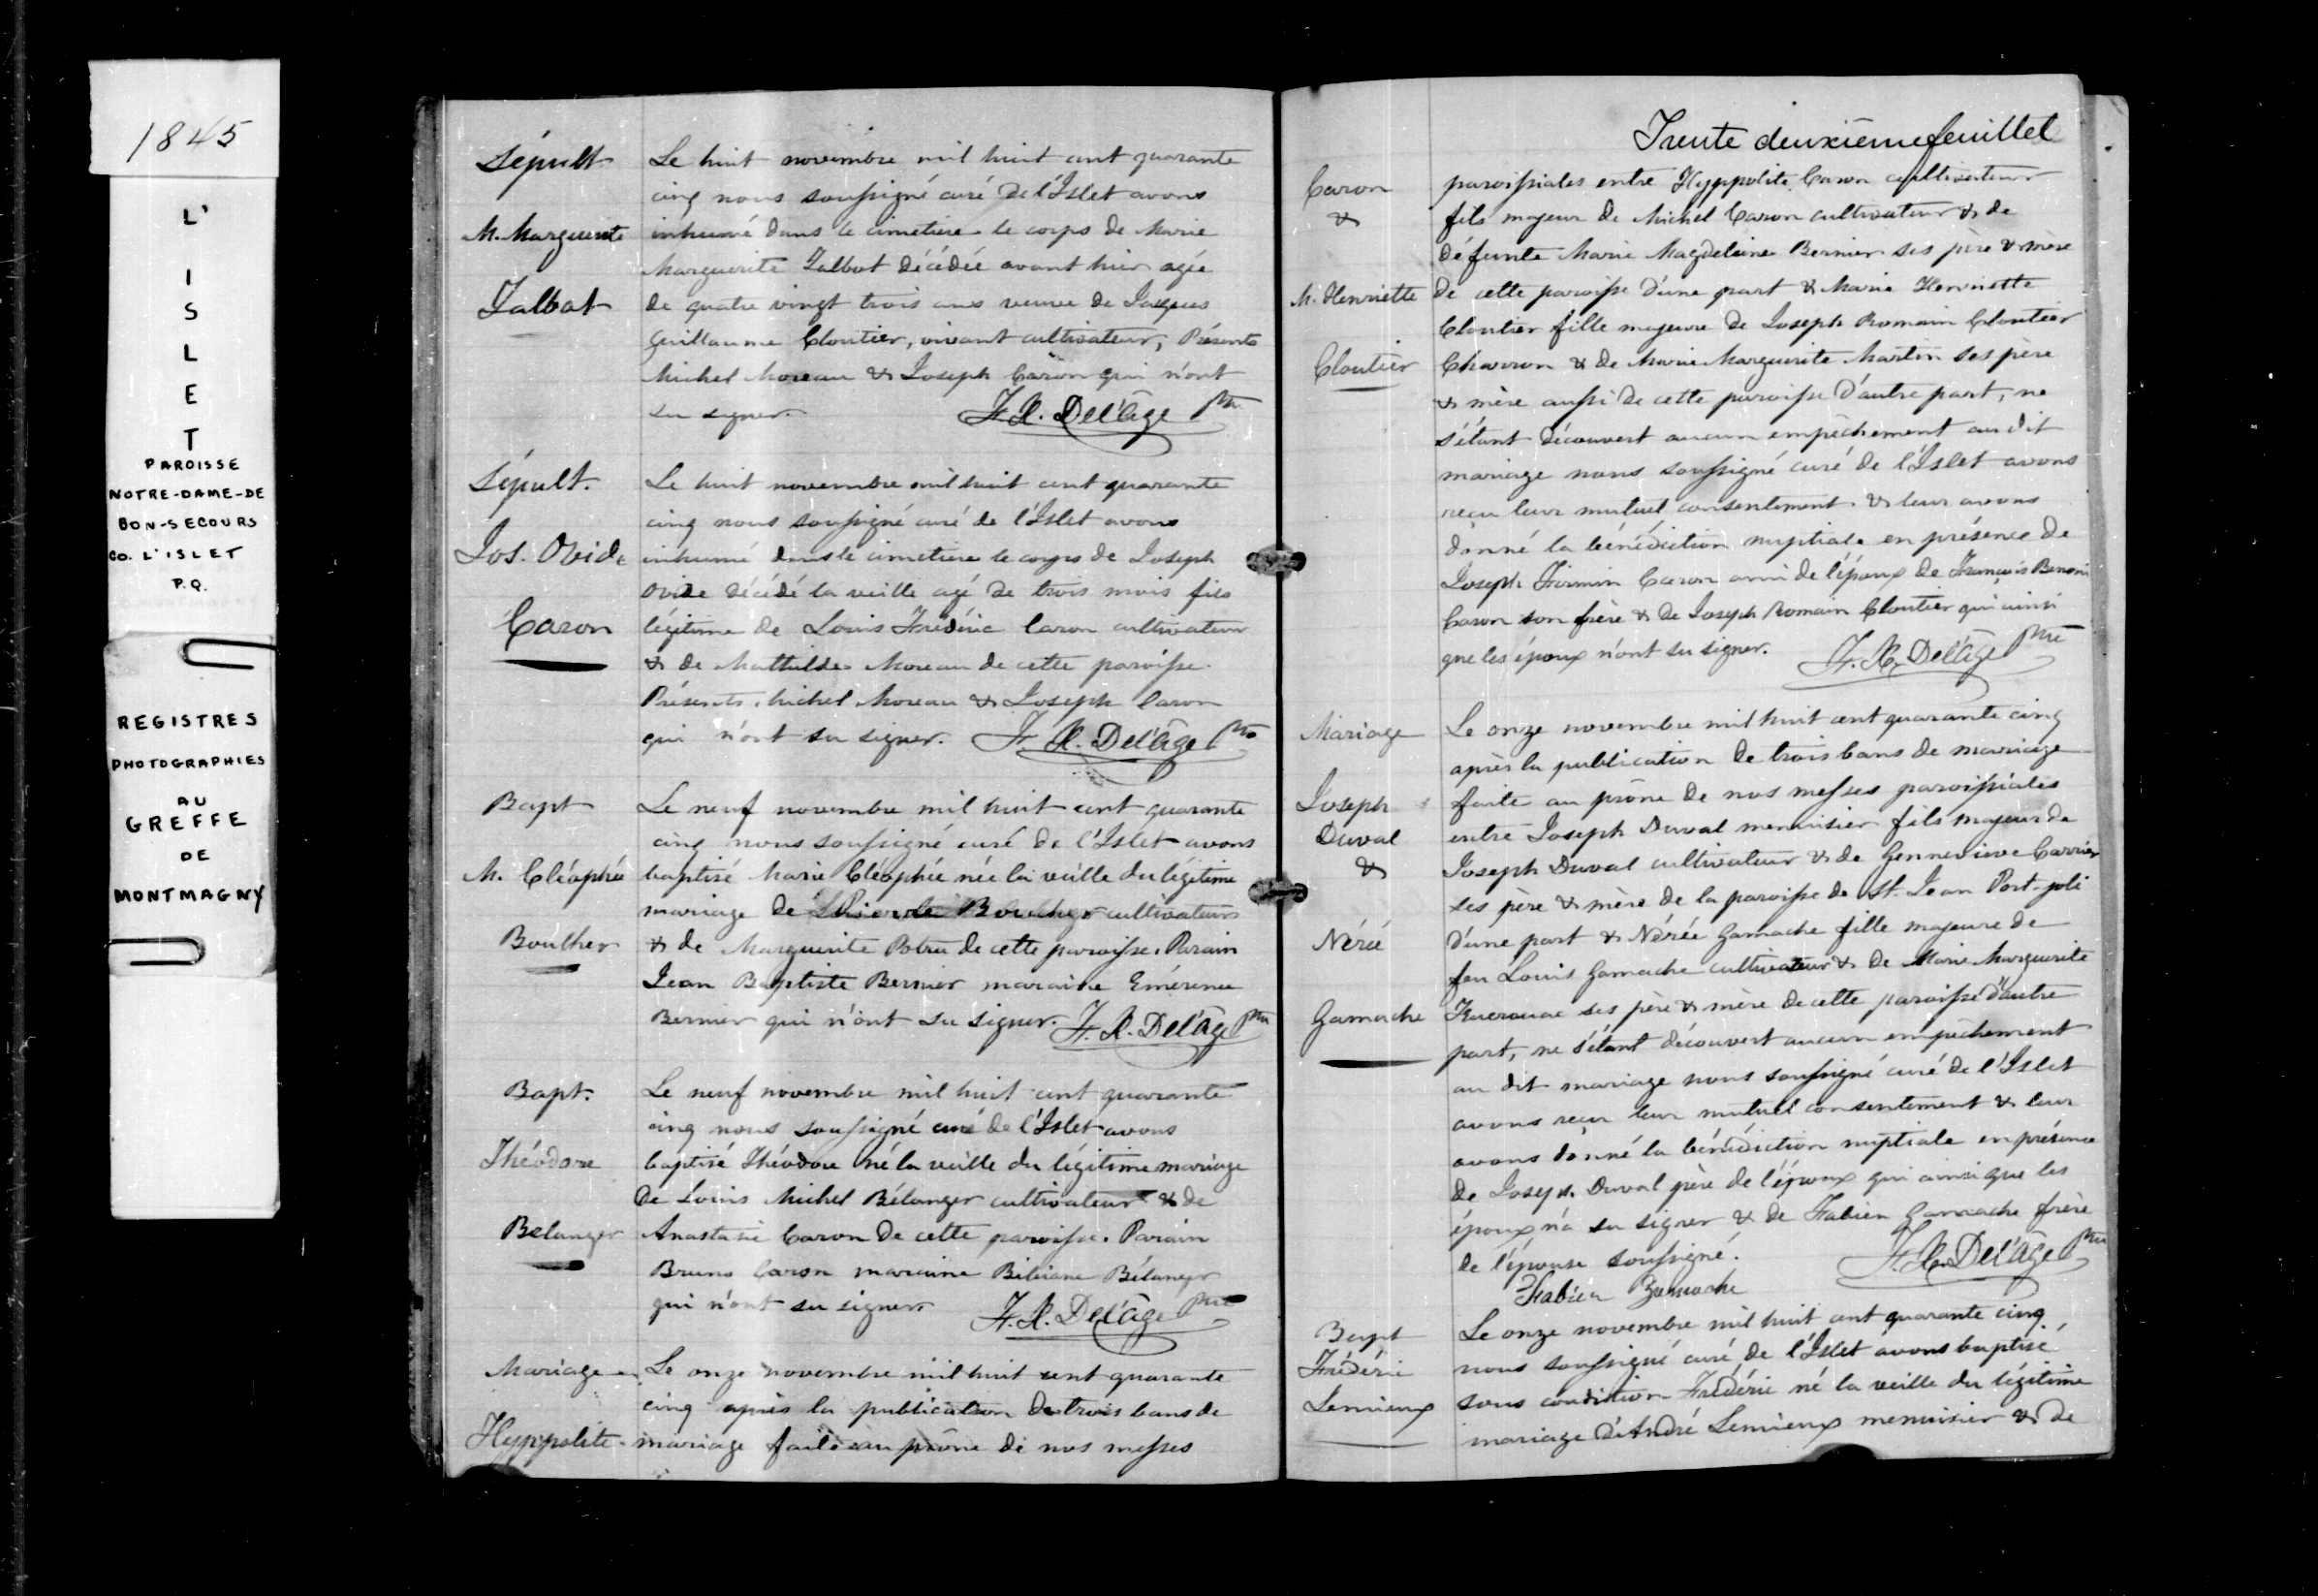 1845
L'
I
S
L
E
T
PAROISSE
NOTRE-DAME-DE
BON-SECOURS
CO. L'ISLET
P.Q.
REGISTRES
PHOTOGRAPHIES
AU
GREFFE
DE
MONTMAGNY
Sépult
M. Marguerite
Talbot
Le huit novembre mil huit cent quarante
cinq nous soussigné curé de l'Islet avons
inhumé dans le cimetière le corps de Marie
Marguerite Talbot décédée avant hier agée
de quatre vingt trois ans veuve de Jacques
Guillaume Cloutier, vivant cultivateur, Présents
Michel Moreau & Joseph Caron qui n'ont
su signer. F. X. Del'âge Ptre
Sépult.
Jos. Ovide
Caron
Le huit novembre mil huit cent quarante
cinq nous soussigné curé de l'Islet avons
inhumé dans le cimetière le corps de Joseph
Ovide décédé la veille agé de trois mois fils
légitime de Louis Frédéric Caron cultivateur
& de Mathilde Moreau de cette paroisse.
Présents Michel Moreau & Joseph Caron
qui n'ont su signer. F. X. Del'âge Ptre
Bapt
M. Cléophée
Boulher
Le neuf novembre mil huit cent quarante
cinq nous soussigné curé de l'Islet avons
baptisé Marie Cléophée née la veille du légitime
mariage de Boucher cultivateur
& de Marguerite de cette paroisse. Parain
Jean Baptiste Bernier maraine Emérence
Bernier qui n'ont su signer. F. X. Del'âge Ptre
Bapt.
Théodore
Belanger
Le neuf novembre mil huit cent quarante
cinq nous soussigné curé de l'Islet avons
baptisé Théodore né la veille du légitime mariage
de Louis Michel Bélanger cultivateur & de
Anastasie Caron de cette paroisse. Parain
Bruno Caron maraine Bibiane Bélanger
qui n'ont su signer. F. X. Del'âge Ptre
Mariage
Hyppolite
Le onze novembre mil huit cent quarante
cinq après la publication de trois bans de
mariage faite au prône de nos messes
Trente deuxième feuillet
Caron
&
M. Henriette
Cloutier
paroissiales entre Hyppolite Caron cultivateur
fils majeur de Michel Caron cultivateur & de
défunte Marie Magdeleine Bernier ses père & mère
de cette paroisse d'une part & Marie Henriette
Cloutier fille majeure de Joseph Romain Cloutier
Charron & de Marie Marguerite Martin ses père
& mère aussi de cette paroisse d'autre part, ne
s'étant découvert aucun empêchement au dit
mariage nous soussigné curé de l'Islet avons
reçu leur mutuel consentement & leur avons
donné la bénédiction nuptiale en présence de
Joseph Firmin Caron ami de l'époux de François Benoni
Caron son frère & de Joseph Romain Cloutier qui ainsi
que les époux n'ont su signer. F. X. Del'âge Ptre
Mariage
Joseph
Duval
&
Nérée
Gamache
Le onze novembre mil huit cent quarante cinq
après la publication de trois bans de mariage
faite au prône de nos messes paroissiales
entre Joseph Duval menuisier fils majeur de
Joseph Duval cultivateur & de Gennevieve Carrier
ses père & mère de la paroisse de St. Jean Port-joli
d'une part & Nérée Gamache fille majeure de
feu Louis Gamache cultivateur & de Marie Marguerite
ses père & mère de cette paroisse d'autre
part, ne s'étant découvert aucun empêchement
au dit mariage nous soussigné curé de l'Islet
avons reçu leur mutuel consentement & leur
avons donné la bénédiction nuptiale en présence
de Joseph Duval père de l'époux qui ainsi que les
époux n'a su signer & de Fabien Gamache frère
de l'épouse soussigné. F. X. Del'âge Ptre
Fabien Gamache
Bapt
Frédéric
Lemieux
Le onze novembre mil huit cent quarante cinq
nous soussigné curé de l'Islet avons baptisé
sous condition Frédéric né la veille du légitime
mariage d'André Lemieux menuisier & de